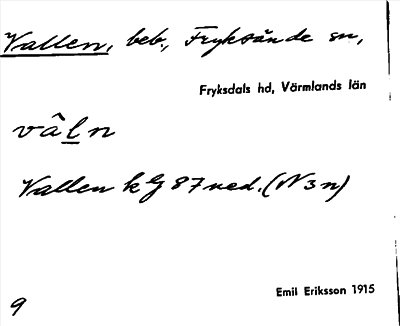 Vallen, beb., Fryksände sn,
Fryksdals hd, Värmlands län
vâl̲n
Vallen k lj 87 ned. (N3n)
Emil Eriksson 1915
9